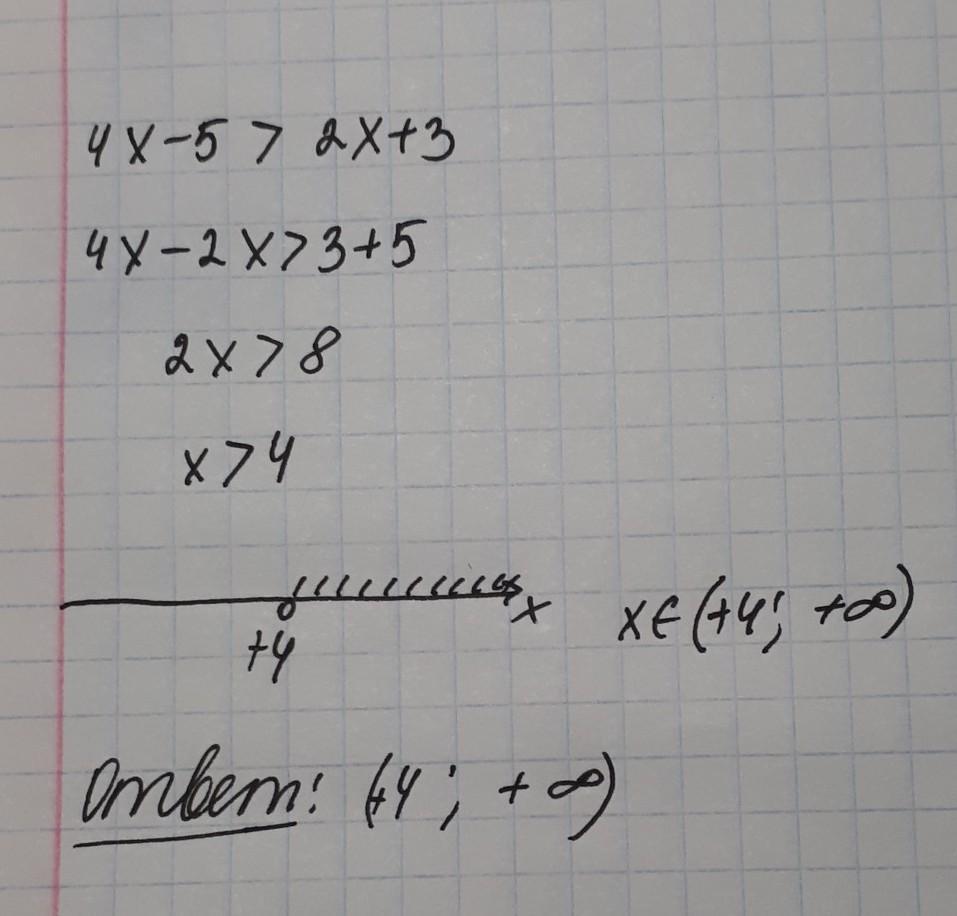 4x-5 > 2x+3
4x-2x>3+5
2x>8
x>4
x
+4
x∈(+4; +∞)
Ответ: (+4; +∞)